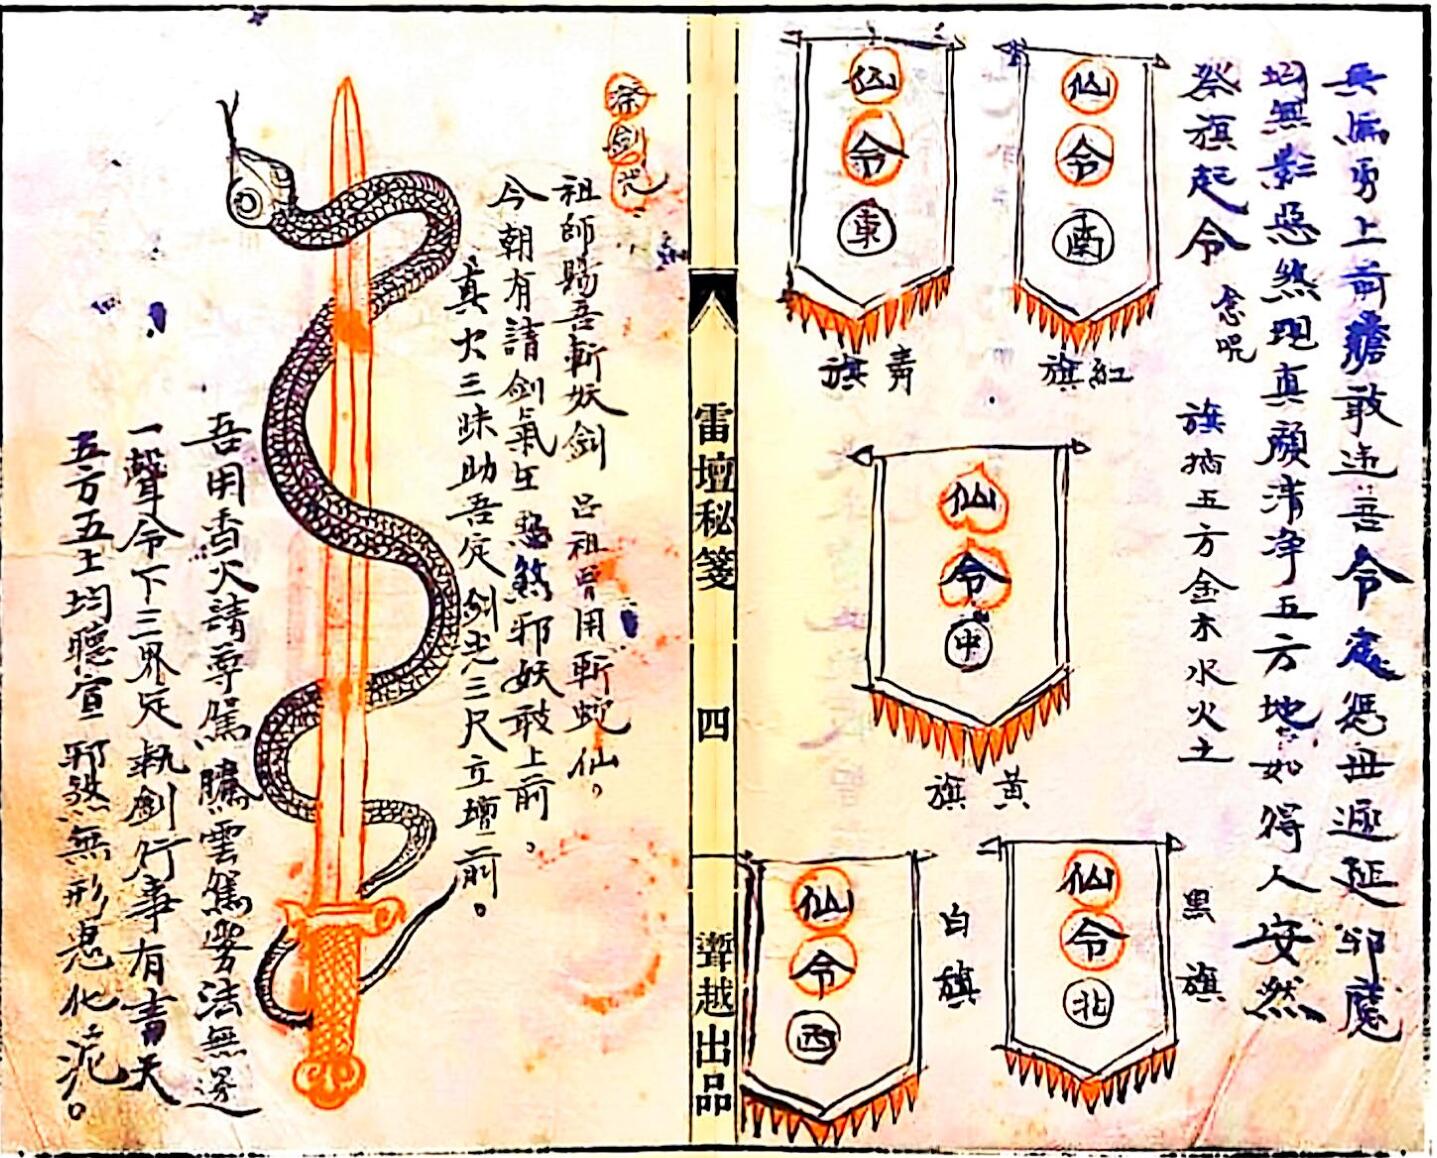 兵無勇上前膽敢違吾令處汝毋遲延邪魔
均無影惡煞現真顏清净五方地如得人安然
祭旗起令 念咒 旗插五方金木水火土
仙令南
紅旗
仙令東
青旗
仙令中
黃旗
仙令北
黑旗
仙令西
白旗
雷壇秘箋 四 聻越出品
祭劍咒
祖師賜吾斬妖劍 吕祖曾用斬蛇仙。
今朝有請劍氣在 惡煞邪妖敢上前。
真火三昧助吾定 劍光三尺立壇前。
吾用香火請尊駕 騰雲駕霧法無邊
一聲令下三界定 執劍行事有青天
五方五土均聽宣 邪煞無形鬼化泥。